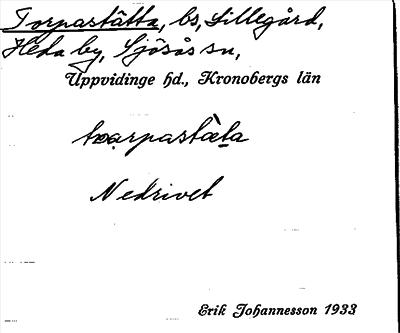 Torpastätta, bs, Lillegård,
Heda by, Sjösås sn,
Uppvidinge hd., Kronobergs län
Nedrivet
Erik Johannesson 1933